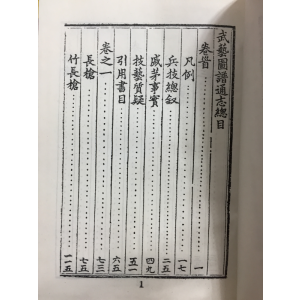 武藝圖譜通志總目
卷首……一
凡例……一七
兵技總敘……二五
戚茅事實……四九
技藝質疑……五一
引用書目……六五
卷之一……七三
長槍……七五
竹長槍……一一五
1